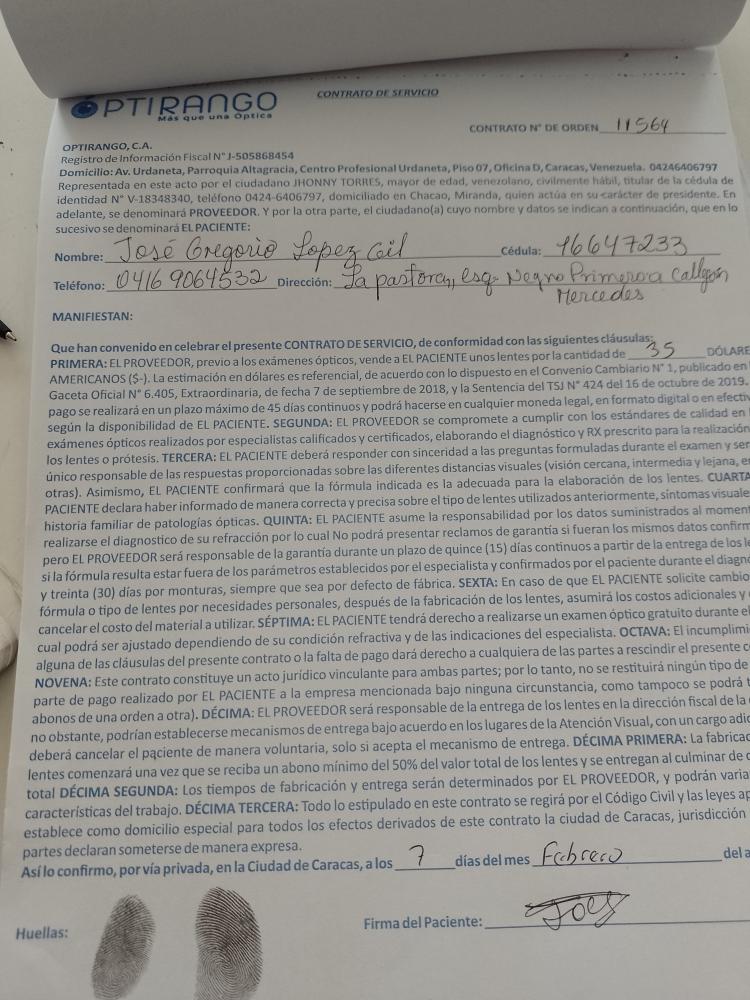 OPTIRANGO
Más que una Óptica
CONTRATO DE SERVICIO
CONTRATO N° DE ORDEN 11564
OPTIRANGO, C.A.
Registro de Información Fiscal N° J-505868454
Domicilio: Av. Urdaneta, Parroquia Altagracia, Centro Profesional Urdaneta, Piso 07, Oficina D, Caracas, Venezuela. 04246406797
Representada en este acto por el ciudadano JHONNY TORRES, mayor de edad, venezolano, civilmente hábil, titular de la cédula de
identidad N° V-18348340, teléfono 0424-6406797, domiciliado en Chacao, Miranda, quien actúa en su carácter de presidente. En
adelante, se denominará PROVEEDOR. Y por la otra parte, el ciudadano(a) cuyo nombre y datos se indican a continuación, que en lo
sucesivo se denominará EL PACIENTE:
Nombre: José Gregorio Lopez Gil Cédula: 16647233
Teléfono: 0416 9064532 Dirección: La pastora, esq. Negro Primero a Callejon
Mercedes
MANIFIESTAN:
Que han convenido en celebrar el presente CONTRATO DE SERVICIO, de conformidad con las siguientes cláusulas:
PRIMERA: EL PROVEEDOR, previo a los exámenes ópticos, vende a EL PACIENTE unos lentes por la cantidad de 35 DÓLARE
AMERICANOS ($-). La estimación en dólares es referencial, de acuerdo con lo dispuesto en el Convenio Cambiario N° 1, publicado en
Gaceta Oficial N° 6.405, Extraordinaria, de fecha 7 de septiembre de 2018, y la Sentencia del TSJ N° 424 del 16 de octubre de 2019.
pago se realizará en un plazo máximo de 45 días continuos y podrá hacerse en cualquier moneda legal, en formato digital o en efectiv
según la disponibilidad de EL PACIENTE. SEGUNDA: EL PROVEEDOR se compromete a cumplir con los estándares de calidad en
exámenes ópticos realizados por especialistas calificados y certificados, elaborando el diagnóstico y RX prescrito para la realización
los lentes o prótesis. TERCERA: EL PACIENTE deberá responder con sinceridad a las preguntas formuladas durante el examen y ser
único responsable de las respuestas proporcionadas sobre las diferentes distancias visuales (visión cercana, intermedia y lejana, e
otras). Asimismo, EL PACIENTE confirmará que la fórmula indicada es la adecuada para la elaboración de los lentes. CUARTA
PACIENTE declara haber informado de manera correcta y precisa sobre el tipo de lentes utilizados anteriormente, síntomas visuale
historia familiar de patologías ópticas. QUINTA: EL PACIENTE asume la responsabilidad por los datos suministrados al momen
realizarse el diagnostico de su refracción por lo cual No podrá presentar reclamos de garantía si fueran los mismos datos confirm
pero EL PROVEEDOR será responsable de la garantía durante un plazo de quince (15) días continuos a partir de la entrega de los l
si la fórmula resulta estar fuera de los parámetros establecidos por el especialista y confirmados por el paciente durante el diagn
y treinta (30) días por monturas, siempre que sea por defecto de fábrica. SEXTA: En caso de que EL PACIENTE solicite cambio
fórmula o tipo de lentes por necesidades personales, después de la fabricación de los lentes, asumirá los costos adicionales y
cancelar el costo del material a utilizar. SÉPTIMA: EL PACIENTE tendrá derecho a realizarse un examen óptico gratuito durante el
cual podrá ser ajustado dependiendo de su condición refractiva y de las indicaciones del especialista. OCTAVA: El incumplimi
alguna de las cláusulas del presente contrato o la falta de pago dará derecho a cualquiera de las partes a rescindir el presente c
NOVENA: Este contrato constituye un acto jurídico vinculante para ambas partes; por lo tanto, no se restituirá ningún tipo de
parte de pago realizado por EL PACIENTE a la empresa mencionada bajo ninguna circunstancia, como tampoco se podrá t
abonos de una orden a otra). DÉCIMA: EL PROVEEDOR será responsable de la entrega de los lentes en la dirección fiscal de la
no obstante, podrían establecerse mecanismos de entrega bajo acuerdo en los lugares de la Atención Visual, con un cargo adic
deberá cancelar el paciente de manera voluntaria, solo si acepta el mecanismo de entrega. DÉCIMA PRIMERA: La fabricac
lentes comenzará una vez que se reciba un abono mínimo del 50% del valor total de los lentes y se entregan al culminar de c
total DÉCIMA SEGUNDA: Los tiempos de fabricación y entrega serán determinados por EL PROVEEDOR, y podrán varia
características del trabajo. DÉCIMA TERCERA: Todo lo estipulado en este contrato se regirá por el Código Civil y las leyes ap
establece como domicilio especial para todos los efectos derivados de este contrato la ciudad de Caracas, jurisdicción
partes declaran someterse de manera expresa.
Así lo confirmo, por vía privada, en la Ciudad de Caracas, a los 7 días del mes Febrero del a
Huellas:
Firma del Paciente: